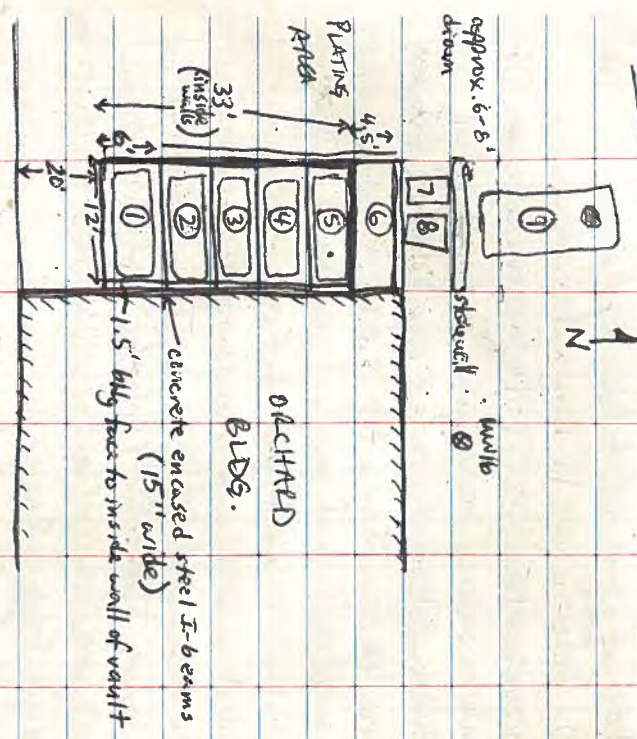 approx. 6-8'
diam
PLATING
AREA
33'
(inside
walls)
4.5'
6'
12'
20'
①
②
③
④
⑤
⑥
⑦
⑧
⑨
N
MW16
ORCHARD
BLDG.
concrete encased steel I-beams
(15" wide)
1.5' bldg face to inside wall of vault